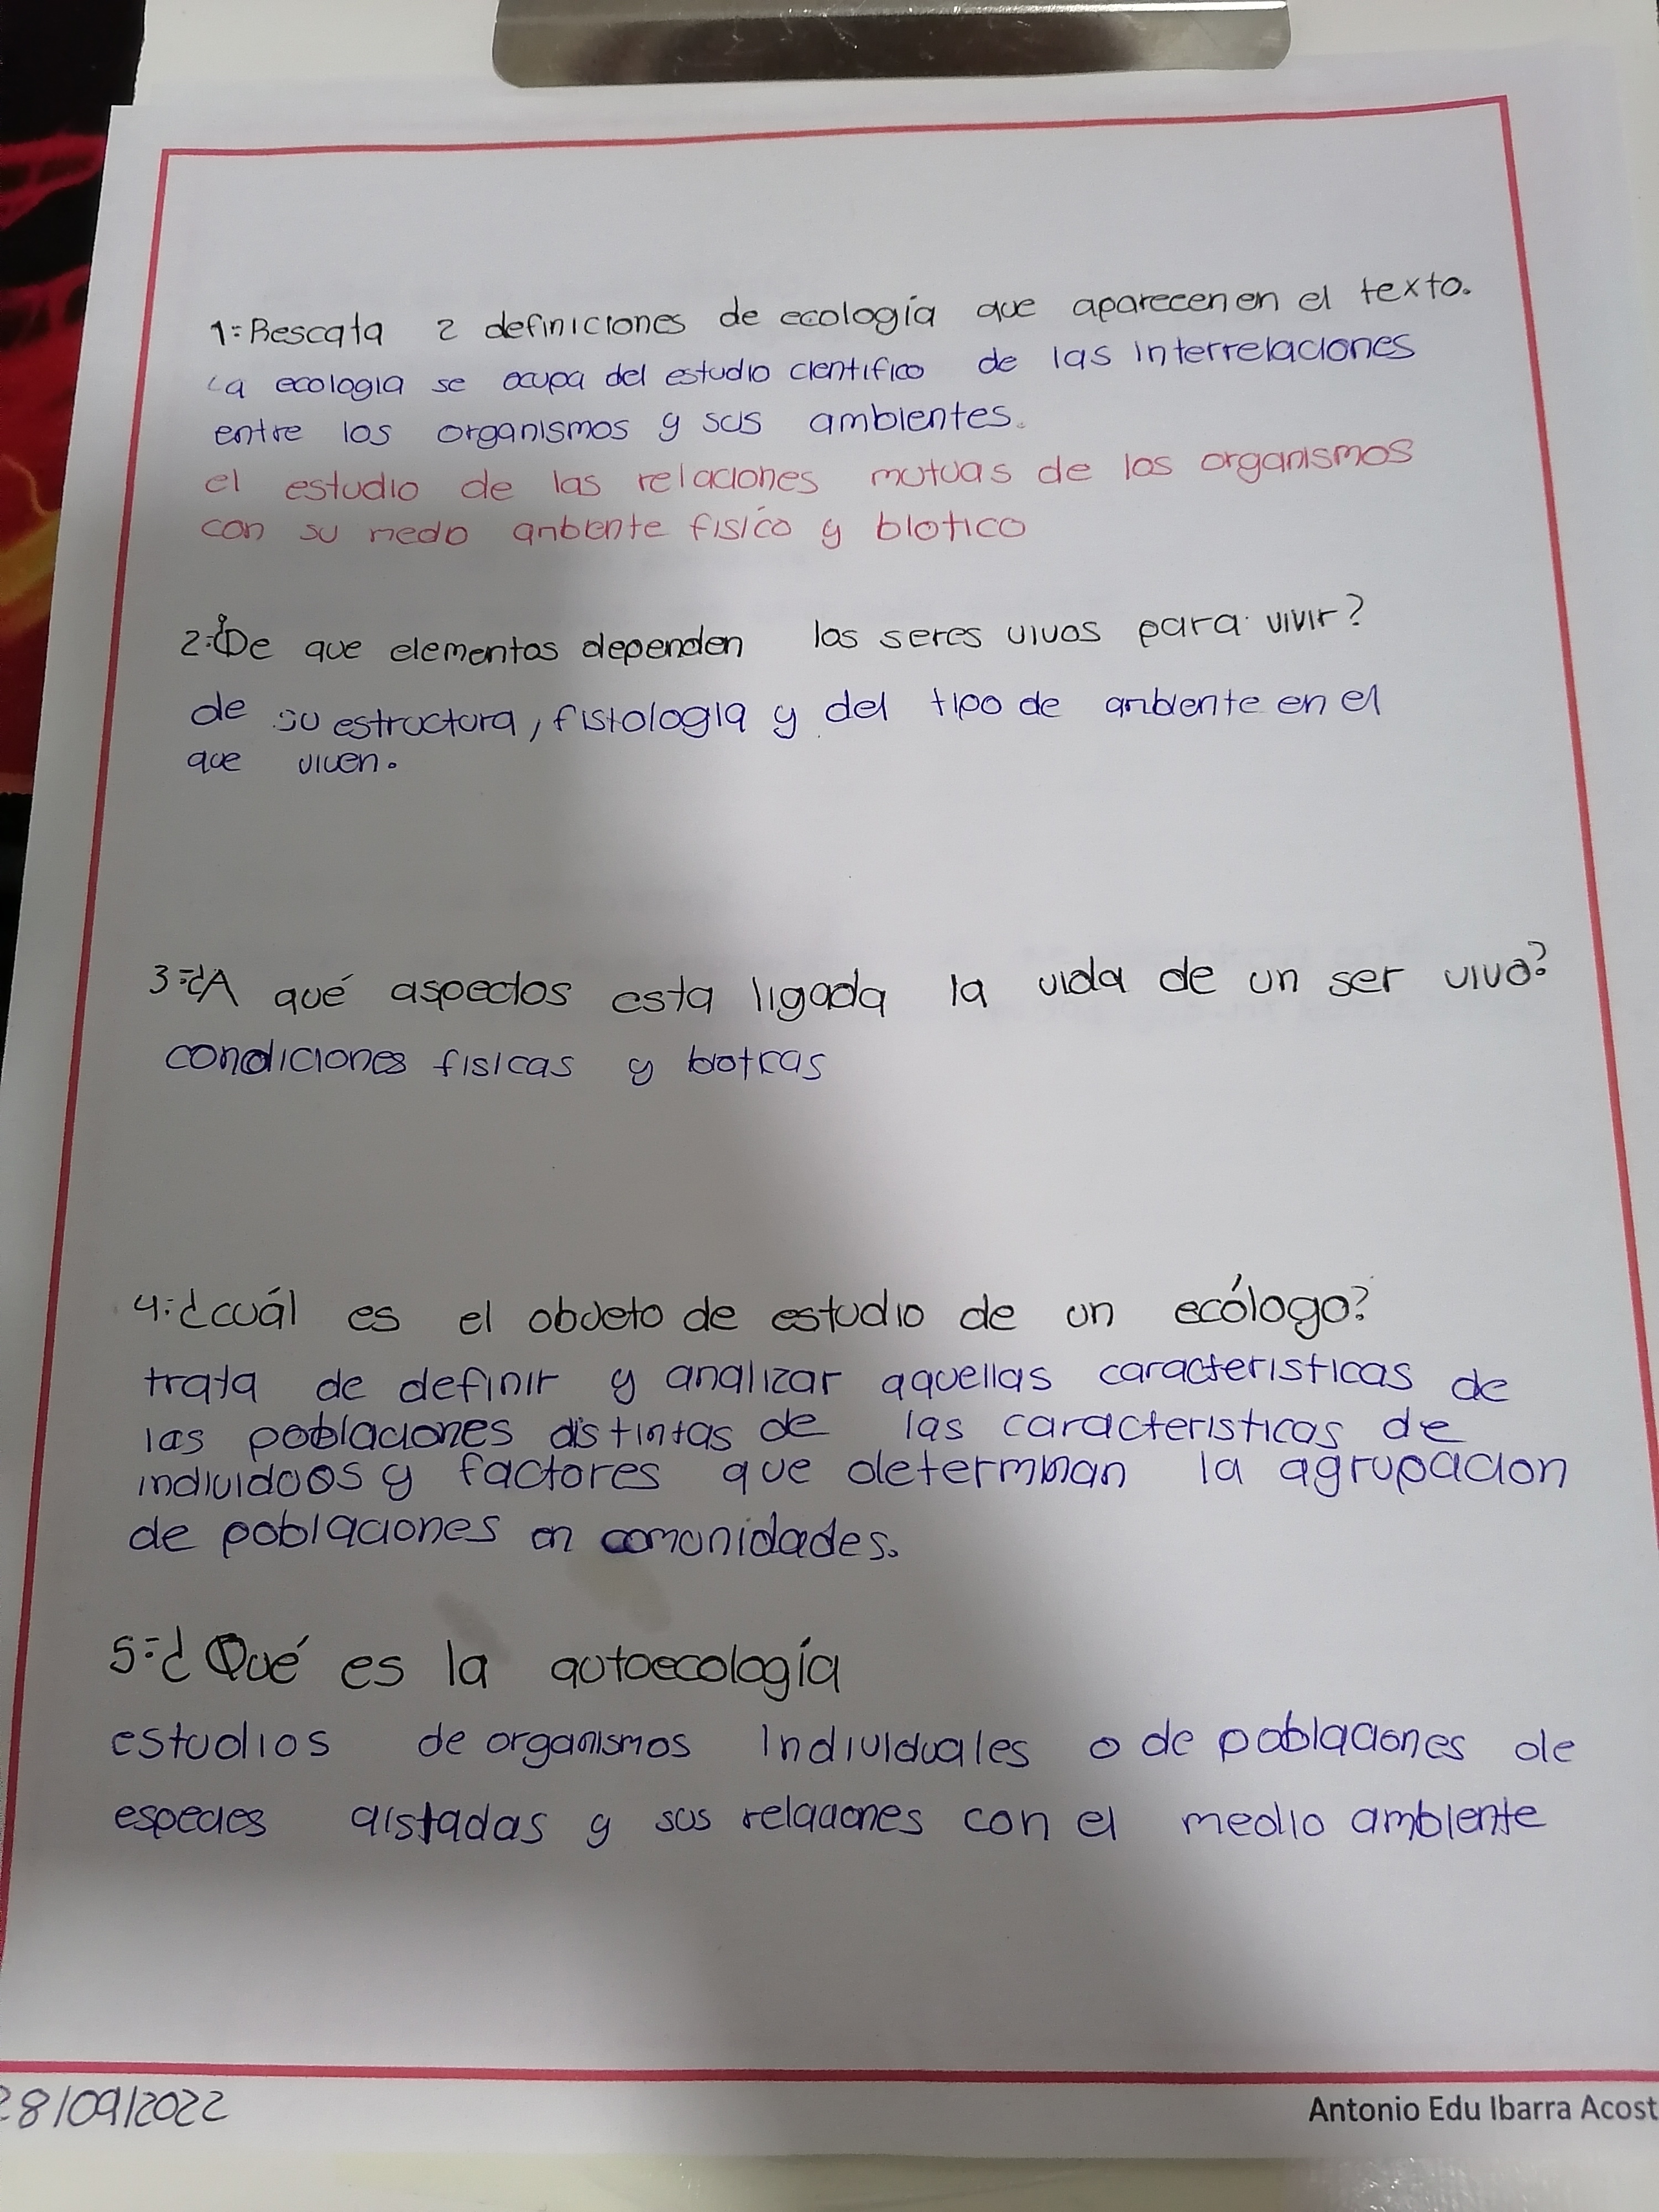 1=Rescata 2 definiciones de ecología que aparecen en el texto.
La ecologia se ocupa del estudio cientifico de las interrelaciones
entre los organismos y sus ambientes.
el estudio de las relaciones mutuas de los organismos
con su medio ambiente fisíco y biotico
2=¿De que elementos dependen los seres vivos para vivir?
de su estructura, fistologia y del tipo de ambiente en el
que viven.
3=¿A qué aspectos esta ligada la vida de un ser vivo?
condiciones fisicas y bioticas
4=¿cuál es el objeto de estudio de un ecólogo?
trata de definir y analizar aquellas caracteristicas de
las poblaciones distintas de las caracteristicas de
individuos y factores que determinan la agrupacion
de poblaciones en comunidades.
5=¿Qué es la autoecología
estudios de organismos individuales o de poblaciones de
especies aistadas y sus relaciones con el medio ambiente
28/09/2022
Antonio Edu Ibarra Acost